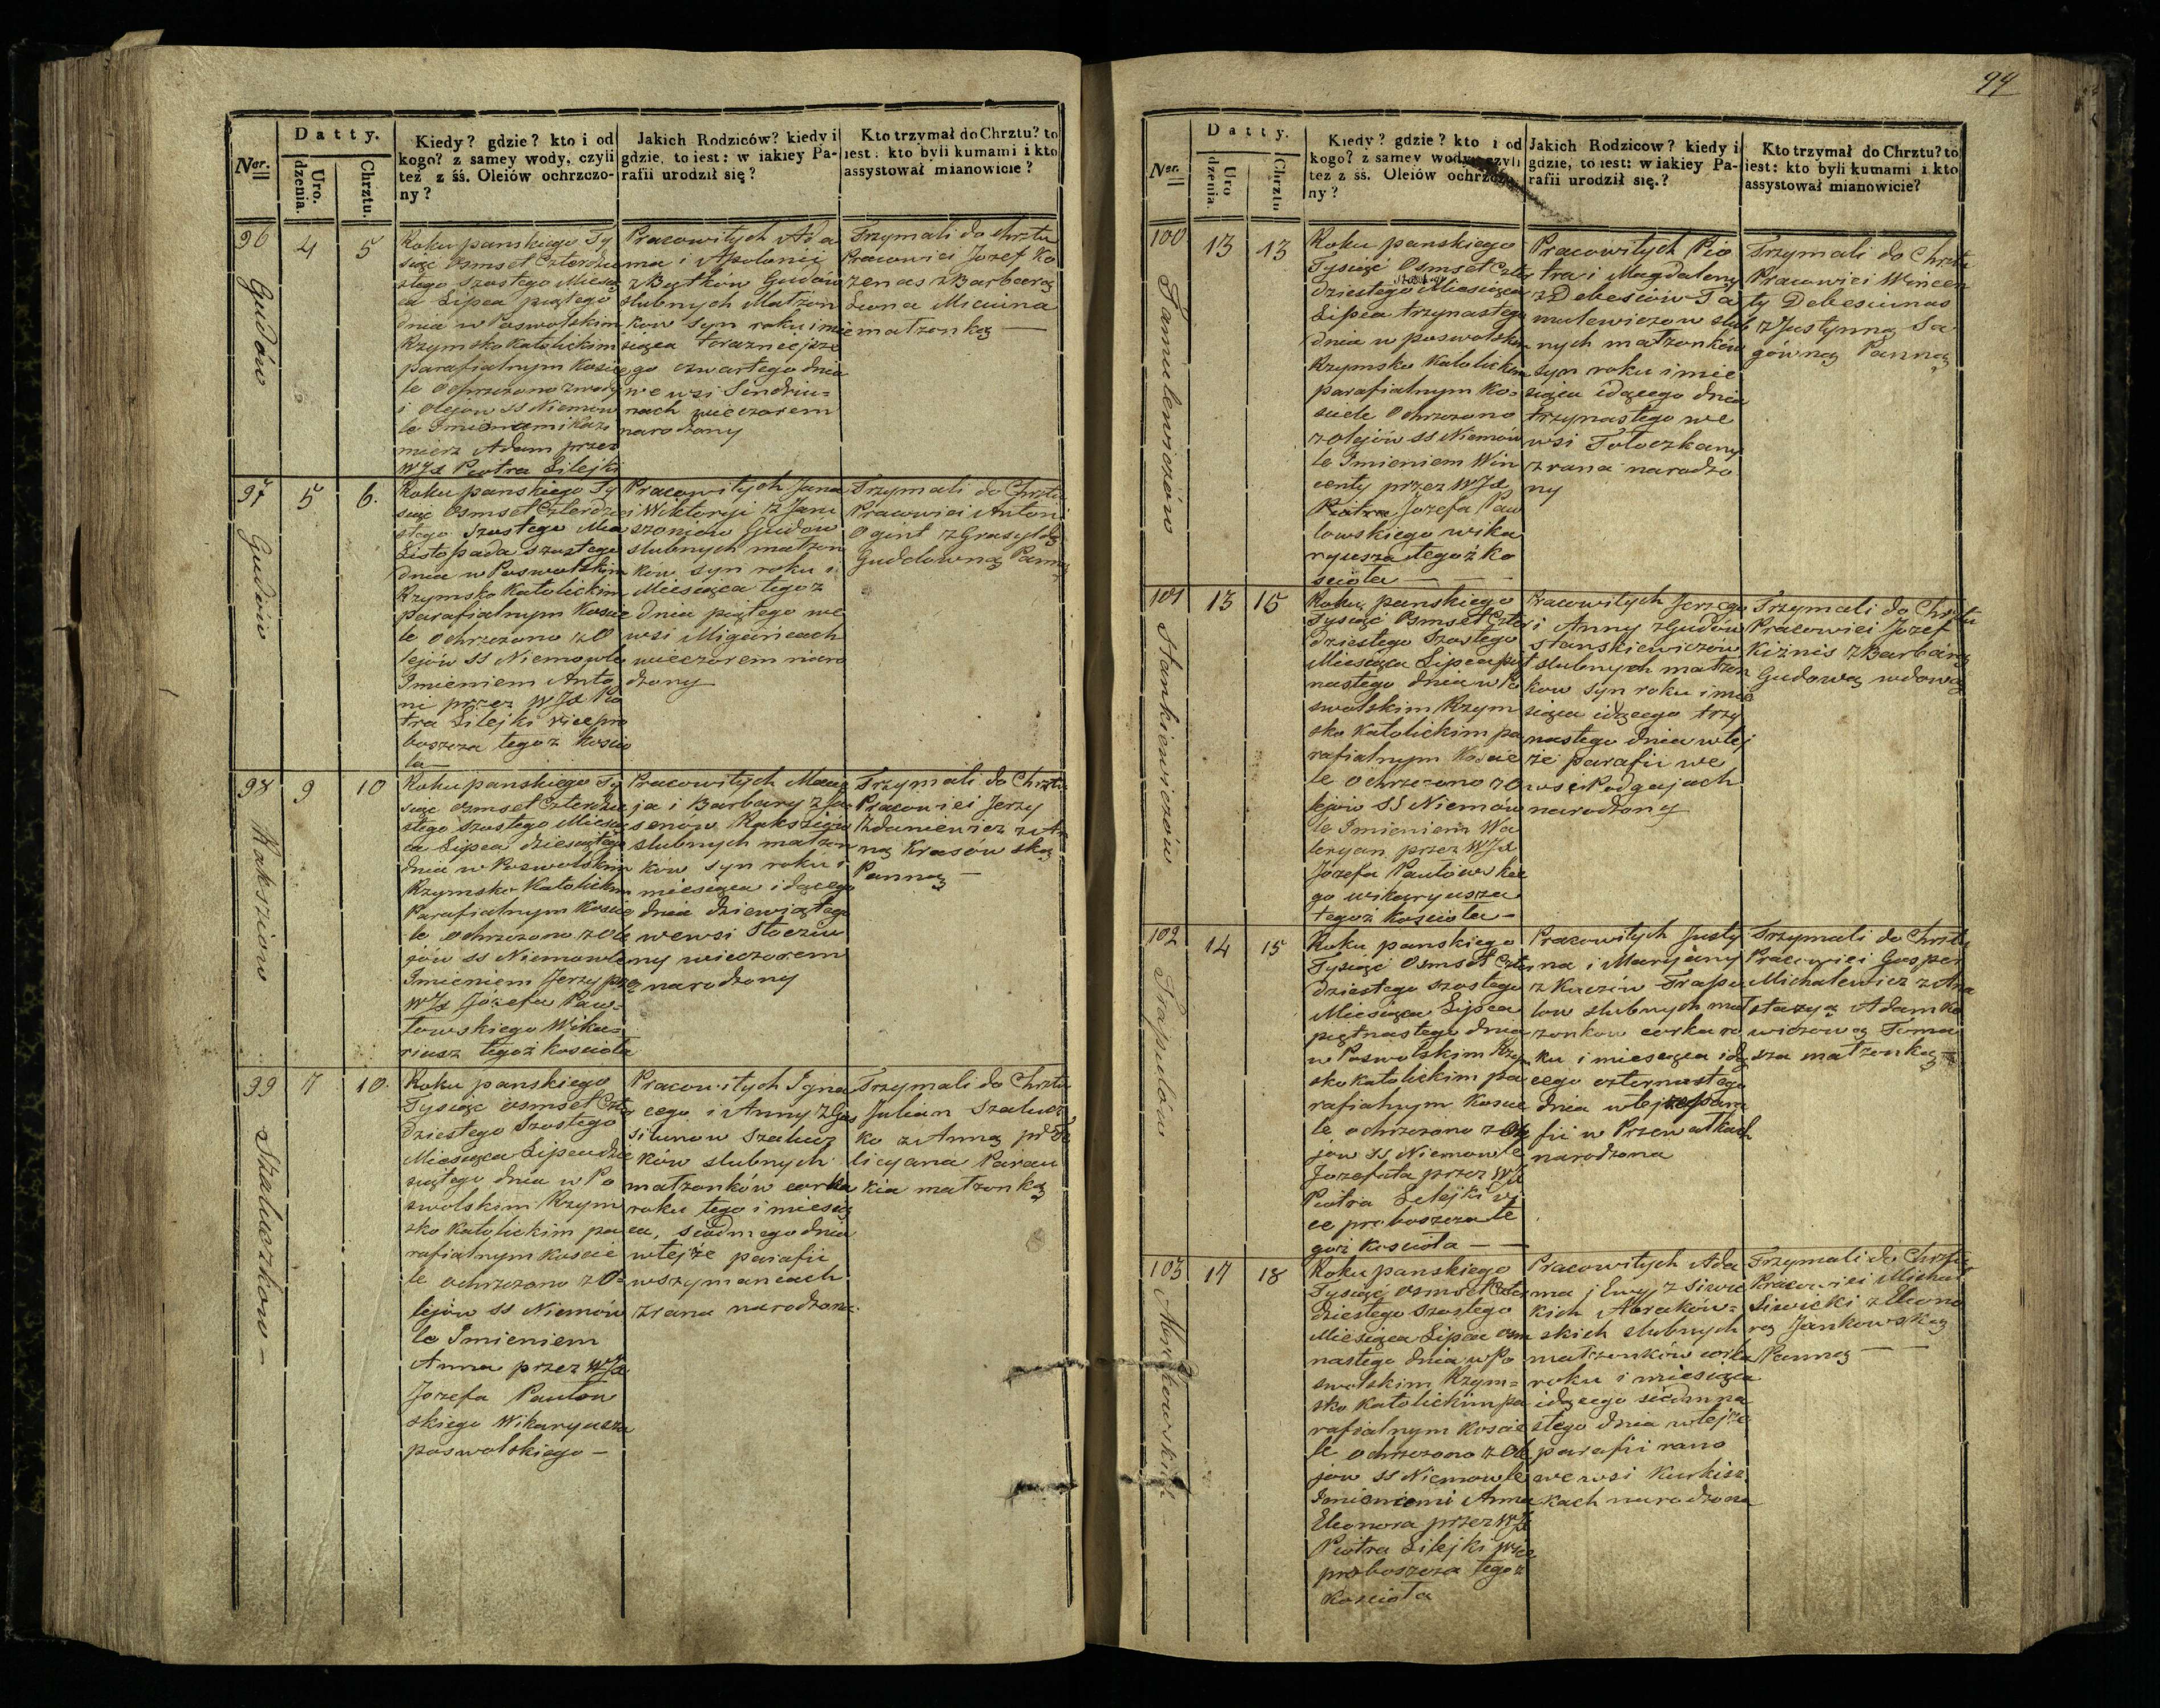 94
Datty.
Ner.
Uro.
dzenia.
Chrztu.
Kiedy? gdzie? kto i od
kogo? z samey wody, czyli
też z śś. Oleiów ochrzczo-
ny?
Jakich Rodziców? kiedy i
gdzie, to iest: w iakiey Pa-
rafii urodził się?
Kto trzymał do Chrztu? to
iest: kto byli kumami i kto
assystował mianowicie?
96
Gudów
4
5
Roku panskiego Ty
siąc Osmset Czterdzie
stego szostego Miesią
ca Lipca piątego
dnia w Poswolskim
Rzymsko Katolickim
parafialnym Koscie
le Ochrzczono z wody
i olejow SS Niemow
le Imionami Kazi
mierz Adam przez
WJX Piotra Lilejki
Pracowitych Ada
ma i Apolonii
z Bątków Gudów
slubnych Małzon
kow syn roku i mie
siąca terazniejsze
go czwartego dnia
we wsi Sindziu=
nach wieczorem
narodzony
Trzymali do chrztu
Pracowici Jozef Ko
zenas z Barbarą
małzonką —
97
Gudów
5
6.
Roku panskiego Ty
siąc Osmset Czterdzie
stego Szostego Mca
Listopada szostego
dnia w Poswolskim
Rzymsko Katolickim
parafialnym Koscie
le Ochrzczono z O
lejów SS Niemowle
Imieniem Anto
ni przez WJX Pio
tra Lilejki vice pro
boszcza tegoz koscio
la —
Pracowitych Jana
i Wiktoryi z Jani
szoniow Gudow
slubnych małzon
ków syn roku i
Miesiąca tegoz
dnia piątego we
wsi Migańcach
wieczorem naro
dzony
Trzymali do Chrztu
Pracowici Antoni
Ogint z Grasyldą
Guddowną Panną
98
Rakszićw
9
10
Roku panskiego Ty
siąc osmset czterdzie
stego szostego Miesią
ca Lipca dziesiątego
dnia w Poswolskim
Rzymsko-Katolickim
Parafialnym Koscie
le Ochrzczono z Ole
jów SS Niemowle
Imieniem Jerzy prz
WJX Józefa Paw=
łowskiego Wika=
riusz tegoż kosciola
ja i Barbary z Ja
slubnych małzon
ków syn roku i
miesiąca idącego
dnia dziewiątego
we wsi Stocziu
ny wieczorem
narodzony
Trzymali do Chrztu
Pracowici Jerzy
Zdaniewicz z An
ną Krasówską
Panną —
99
Szaluczkow —
7
10.
Roku panskiego
Tysiąc osmset Czter
dziestego Szostego
Miesiąca Lipca dzie
siątego dnia w Po
swolskim Rzym
sko Katolickim pa
rafialnym koscie
le ochrzczono z O=
lejów SS Niemów
le Imieniem
Anna przez WJX
Jozefa Pawłow
skiego Wikaryusza
poswolskiego —
Pracowitych Igna
cego i Anny z Gas
siunow Szalucz
ków slubnych
małzonków corka
roku tego i miesią
ca, siodmego dnia
w tejże parafii
w Szymancach
z rana narodzona.
Trzymali do Chrztu
Julian Szalucz
ko z Anną po Fe
licyana Parau
kia małzonką
Datty.
Ner.
Uro
dzenia.
Chrztu
Kiedy? gdzie? kto i od
kogo? z samey wody, czyli
też z śś. Oleiów ochrzczo-
ny?
Jakich Rodzicow? kiedy i
gdzie, to iest: w iakiey Pa-
rafii urodził się.?
Kto trzymał do Chrztu? to
iest: kto byli kumami i kto
assystował mianowicie?
100
Tamulewiczów
13
13
Roku panskiego
Tysiąc Osmset Czter
dziestego szostego Miesiąca
Lipca trzynastego
dnia w poswolskim
Rzymsko Katolickim
parafialnym Ko=
sciele Ochrzczono
z olejów SS Niemów
le Imieniem Win
centy przez WJX
Piotra Jozefa Paw
lowskiego wika
ryusza tegoż ko
sciola —
Pracowitych Pio
tra i Magdaleny
z Debesiów Ta
mulewiczow slub
nych małzonków
syn roku i mie
siąca idącego dnia
trzynastego we
wsi Toloczkany
z rana narodzo
ny
Trzymali do Chrztu
Pracowici Wincen
ty Debesiunas
z Justynną Sa
gówną Panną
101
Stankiewiczów
13
15
Roku panskiego
Tysiąc Osmset Czter
dziestego Szostego
Miesiąca Lipca pięt
nastego dnia w Po
swolskim Rzym
sko Katolickim pa
rafialnym Koscie
le Ochrzczono z O
lejow SS Niemów
le Imieniem Wa
leryan przez WJX
Józefa Pawłowskie
go wikaryusza
tegoż Kosciola —
Pracowitych Jerzego
i Anny z Gudów
Stankiewiczów
slubnych małzon
kow syn roku i mie
siąca idącego trzy
nastego dnia w tej
że parafii we
wsi Podgajach
narodzony
Trzymali do Chrztu
Pracowici Jozef
Kiznis z Barbarą
Gudową wdową
102
Trapulów
14
15
Roku panskiego
Tysiąc Osmset Czter
dziestego szostego
Miesiąca Lipca
piętnastego dnia
w Poswolskim Rzym
sko katolickim pa
rafialnym Koscie
le ochrzczono z Ole
jow SS Niemowle
Jozefata przez WJX
Piotra Lilejki vi
ce proboszcza te
goż kosciola —
Pracowitych Justy
na i Maryany
z Kuczów Trapu
low slubnych mał
zonkow corka ro
ku i miesiąca idą
cego czternastego
dnia w tejze para
fii w Przewalkach
narodzona
Trzymali do Chrztu
Pracowici Gasper
Michalewicz z Ana
stazyą Adamko
wiczową Toma
sza małzonką —
103
17
18
Roku panskiego
Tysiąc osmset Czter
dziestego szostego
Miesiąca Lipca osm
nastego dnia w Po
swolskim Rzym=
sko Katolickim pa
rafialnym koscie
le ochrzczono z Ole
jow SS Niemowle
Imieniemi Anna
Eleonora przez WJX
Piotra Lilejki vice
proboszcza tegoz
Kosciola
Pracowitych Ada
ma j Ewy z Siwic
kich
skich slubnych
małzonków corka
roku i miesiąca
idącego siedmna
stego dnia w tejże
parafii rano
we wsi Kurkisz
kach narodzona
Trzymali do Chrztu
Pracowici Michał
Siwicki z Eleono
rą Jankowską
Panną —